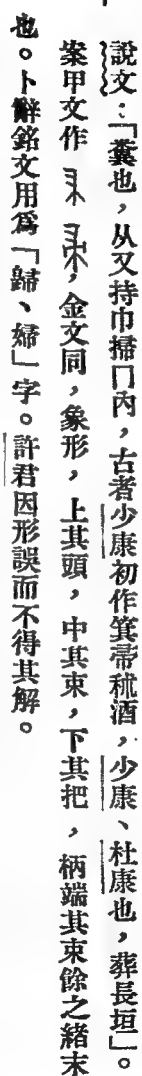 說文:「糞也,从又持巾掃冂內,古者少康初作箕帚秫酒,少康、杜康也,葬長垣」。
案甲文作,金文同,象形,上其頭,中其束,下其把,柄端其束餘之緒末
也。卜辭銘文用爲「歸、婦」字。許君因形誤而不得其解。